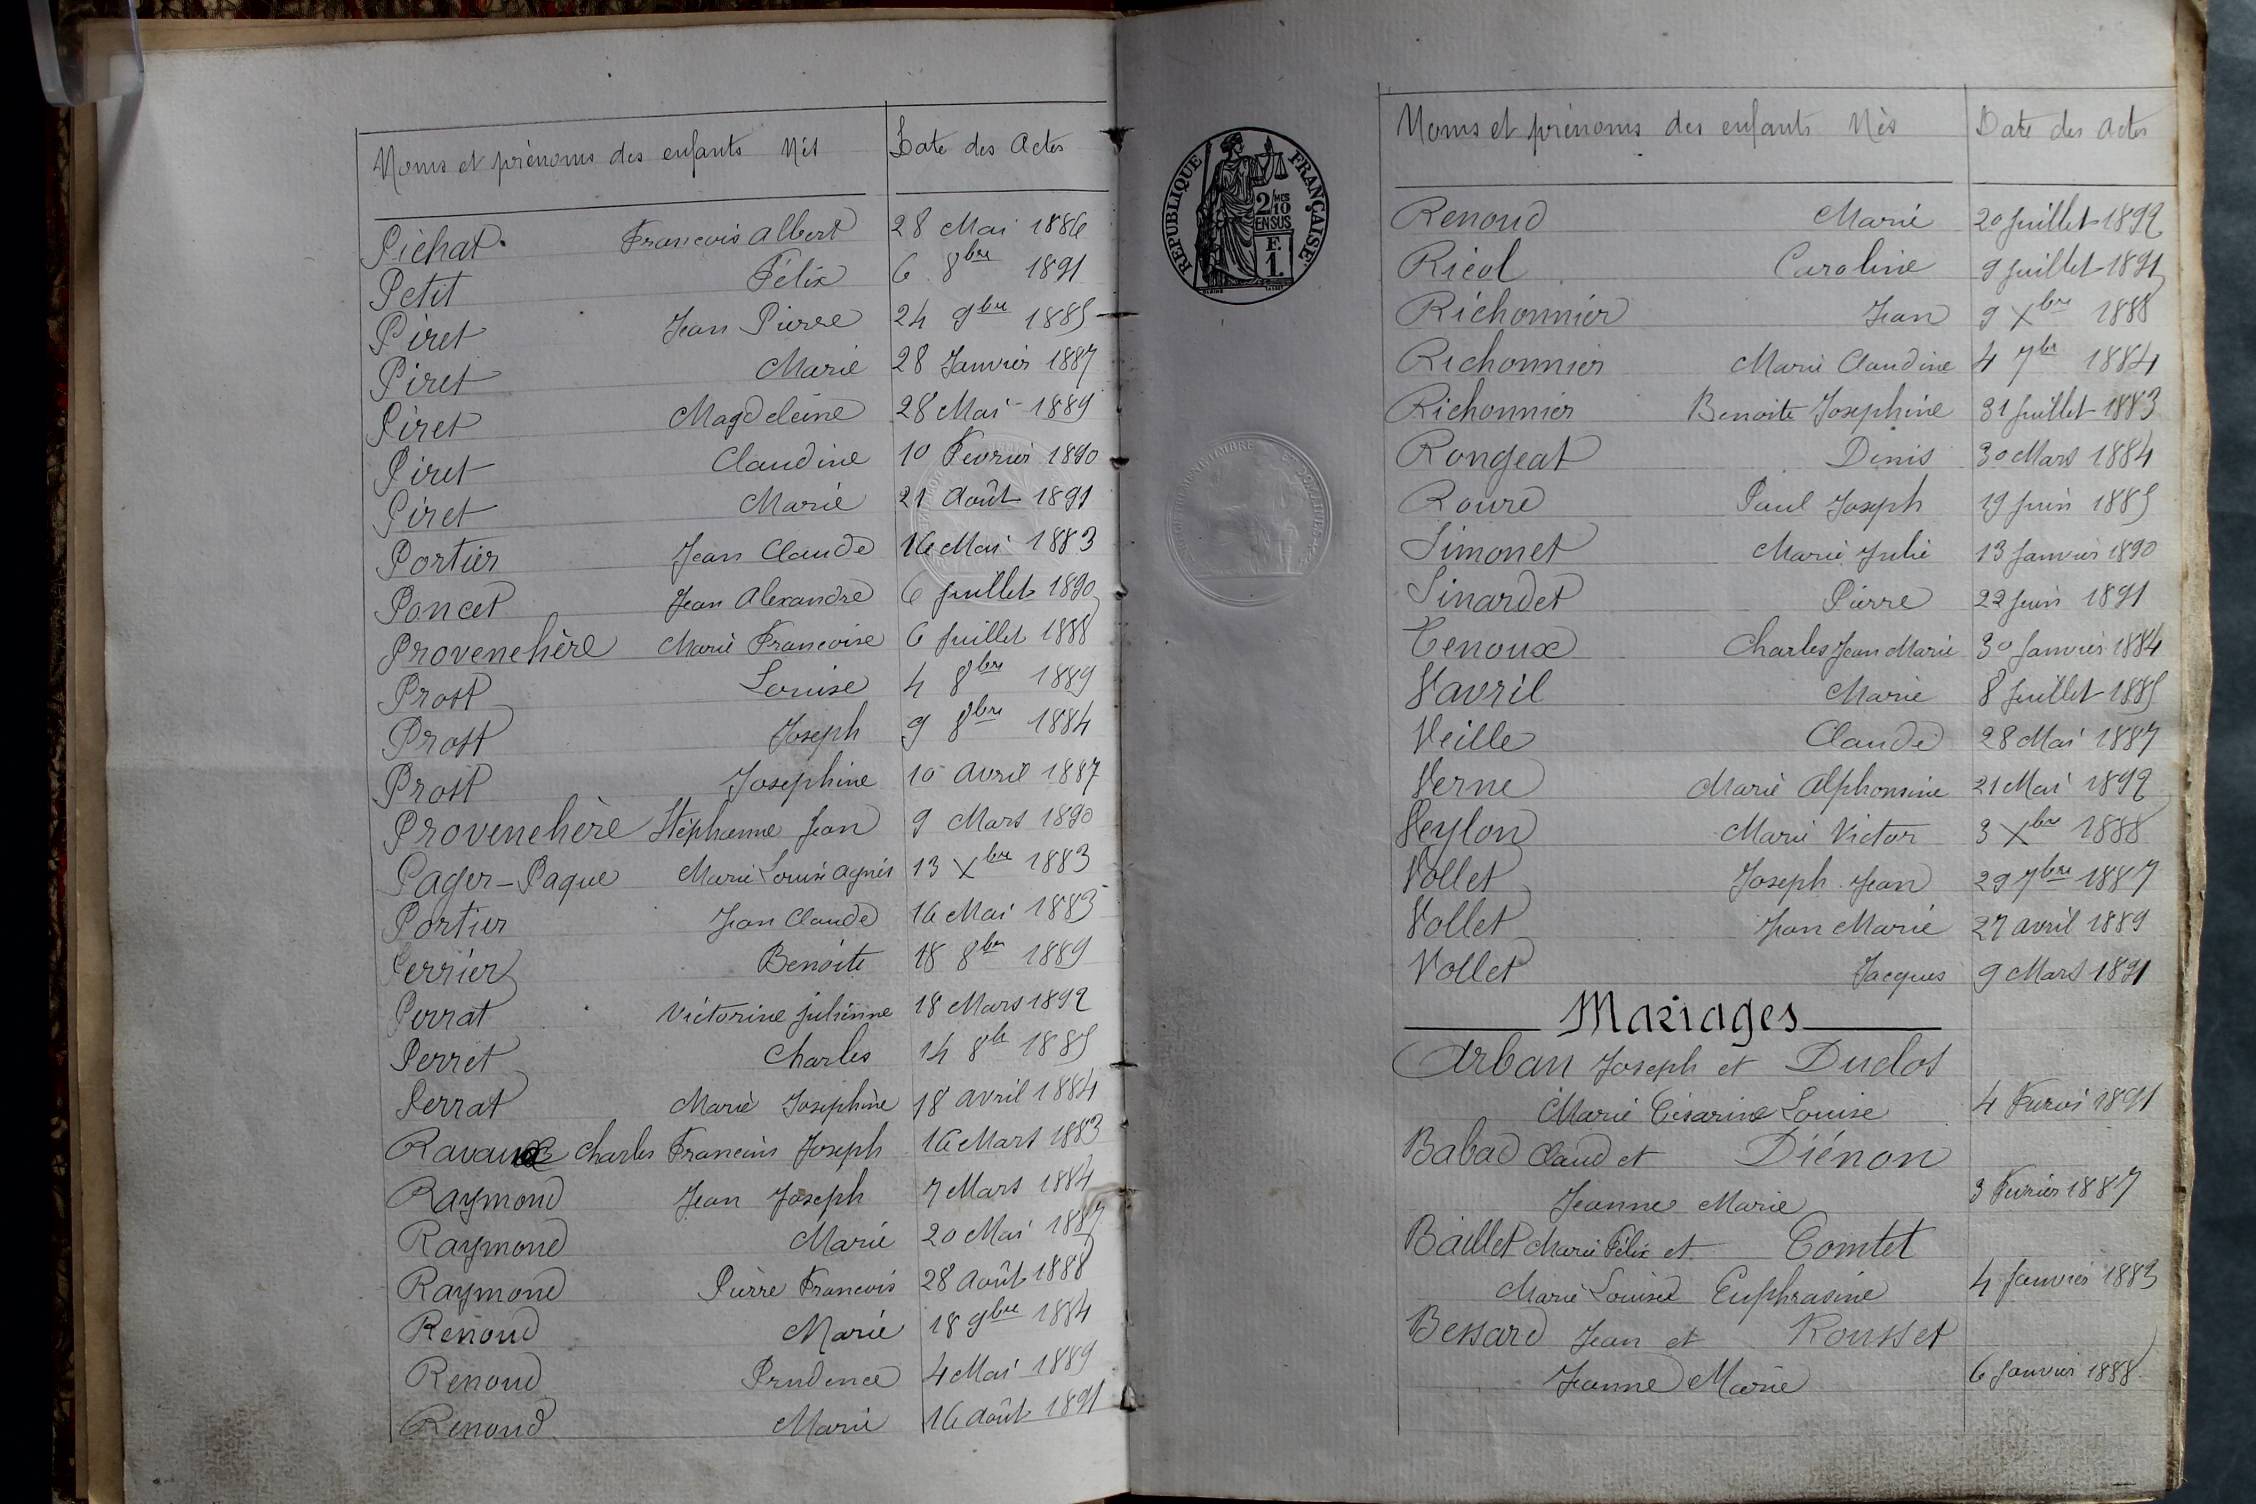 Noms et prénoms des enfants Nés Date des Actes
Pichat. Francois Albert 28 Mai 1886
Petit Félix 6 8bre 1891
Piret Jean Pierre 24 9bre 1885
Piret Marie 28 Janvier 1887
Piret Magdeleine 28 Mai 1889
Piret Claudine 10 Fevrier 1890
Piret Marie 21 Août 1891
Portier Jean Claude 16 Mai 1883
Poncet Jean Alexandre 6 Juillet 1890
Provenchère Marie Francoise 6 Juillet 1888
Prost Louise 4 8bre 1889
Prost Joseph 9 8bre 1884
Prost Josephine 10 Avril 1887
Provenchère Stéphanne Jean 9 Mars 1890
Pager-Paque Marie Louise Agnès 13 Xbre 1883
Portier Jean Claude 16 Mai 1883
Perrier Benoite 18 8bre 1889
Perrat Victorine Julienne 18 Mars 1892
Perret Charles 14 8bre 1885
Perrat Marie Josephine 18 Avril 1884
Ravaux Charles Francois Joseph 16 Mars 1883
Raymond Jean Joseph 7 Mars 1884
Raymond Marie 20 Mai 1887
Raymond Pierre Francois 28 Août 1888
Renoud Marie 18 9bre 1884
Renoud Prudence 4 Mai 1889
Renoud Marie 16 Août 1891
REPUBLIQUE FRANÇAISE
2/MES
10
EN SUS
F.
1.
Noms et prénoms des enfants Nés Date des Actes
Renoud Marie 20 Juillet 1892
Ricol Caroline 9 Juillet 1891
Richonnier Jean 9 Xbre 1888
Richonnier Marie Claudine 4 7bre 1884
Richonnier Benoite Josephine 31 Juillet 1883
Rongeat Denis 30 Mars 1884
Roure Paul Joseph 19 Juin 1885
Simonet Marie Julie 13 Janvier 1890
Sinardet Pierre 22 Juin 1891
Tenoux Charles Jean Marie 30 Janvier 1884
Vavril Marie 8 Juillet 1885
Veille Claude 28 Mai 1887
Verne Marie Alphonsine 21 Mai 1892
Veylon Marie Victor 3 Xbre 1888
Vollet Joseph Jean 29 7bre 1887
Vollet Jean Marie 27 Avril 1889
Vollet Jacques 9 Mars 1891
Mariages
Arban Joseph et Duclos
Marie Césarine Louise 4 Fevrier 1891
Babad Claud et Diénon
Jeanne Marie 3 Fevrier 1887
Baillet Marie Félix et Comtet
Marie Louise Euphrasine 4 Janvier 1883
Bessard Jean et Rousset
Jeanne Marie 6 Janvier 1888